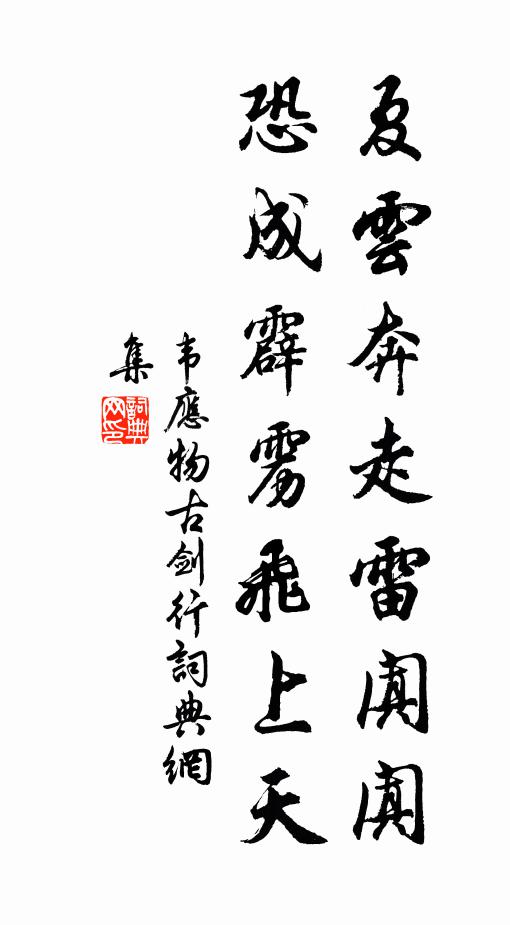 夏雲奔走雷闐闐
恐成霹雳飛上天
韦應物古剑行詞典網
集
詞典
网印